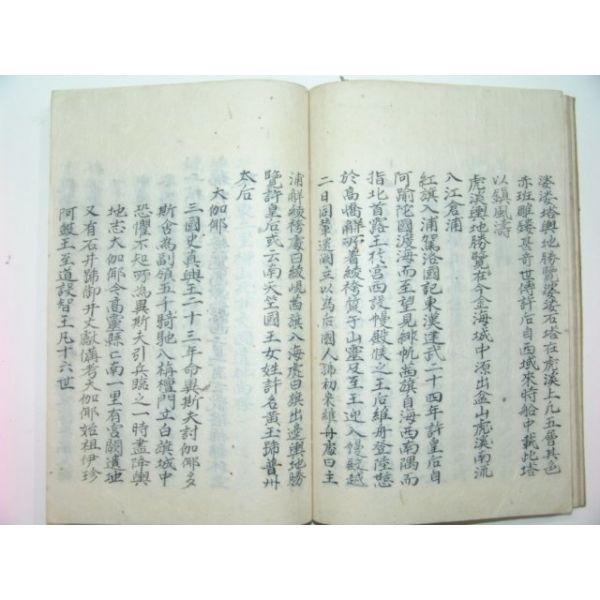 婆娑塔輿地勝覽婆娑石塔在虎溪上凡五層其色
赤班雕鏤甚奇世傳許后自西域來時船中載此塔
以鎮風濤
虎溪輿地勝覽在今金海城中源出盆山虎溪南流
入江倉浦
紅旗入浦駕洛國記東漢建武二十四年許皇后自
阿踰陀國渡海而至望見緋帆茜旗自海西南隅而
指北首路王於宮西設幔殿候之王后維舟登陸憩
於高嶠解所着綾袴質于山靈及至王迎入幔殿越
二日同輦還闕立以為后國人號初來維舟處曰主
浦解綾袴處曰綾峴茜旗入海處曰旗出邊輿地勝
覽許皇后或云南天竺國王女姓許名黃玉號普州
太后
大伽倻
三國史真興王二十三年命異斯夫討伽倻多
斯含為副領五千騎馳入栴檀門立白旗城中
恐懼不知所為異斯夫引兵臨之一時盡降輿
地志大伽倻今高靈縣縣南一里有宮闕遺址
又有石井號御井文獻備考大伽倻始祖伊珍
阿豉王至道設智王凡十六世